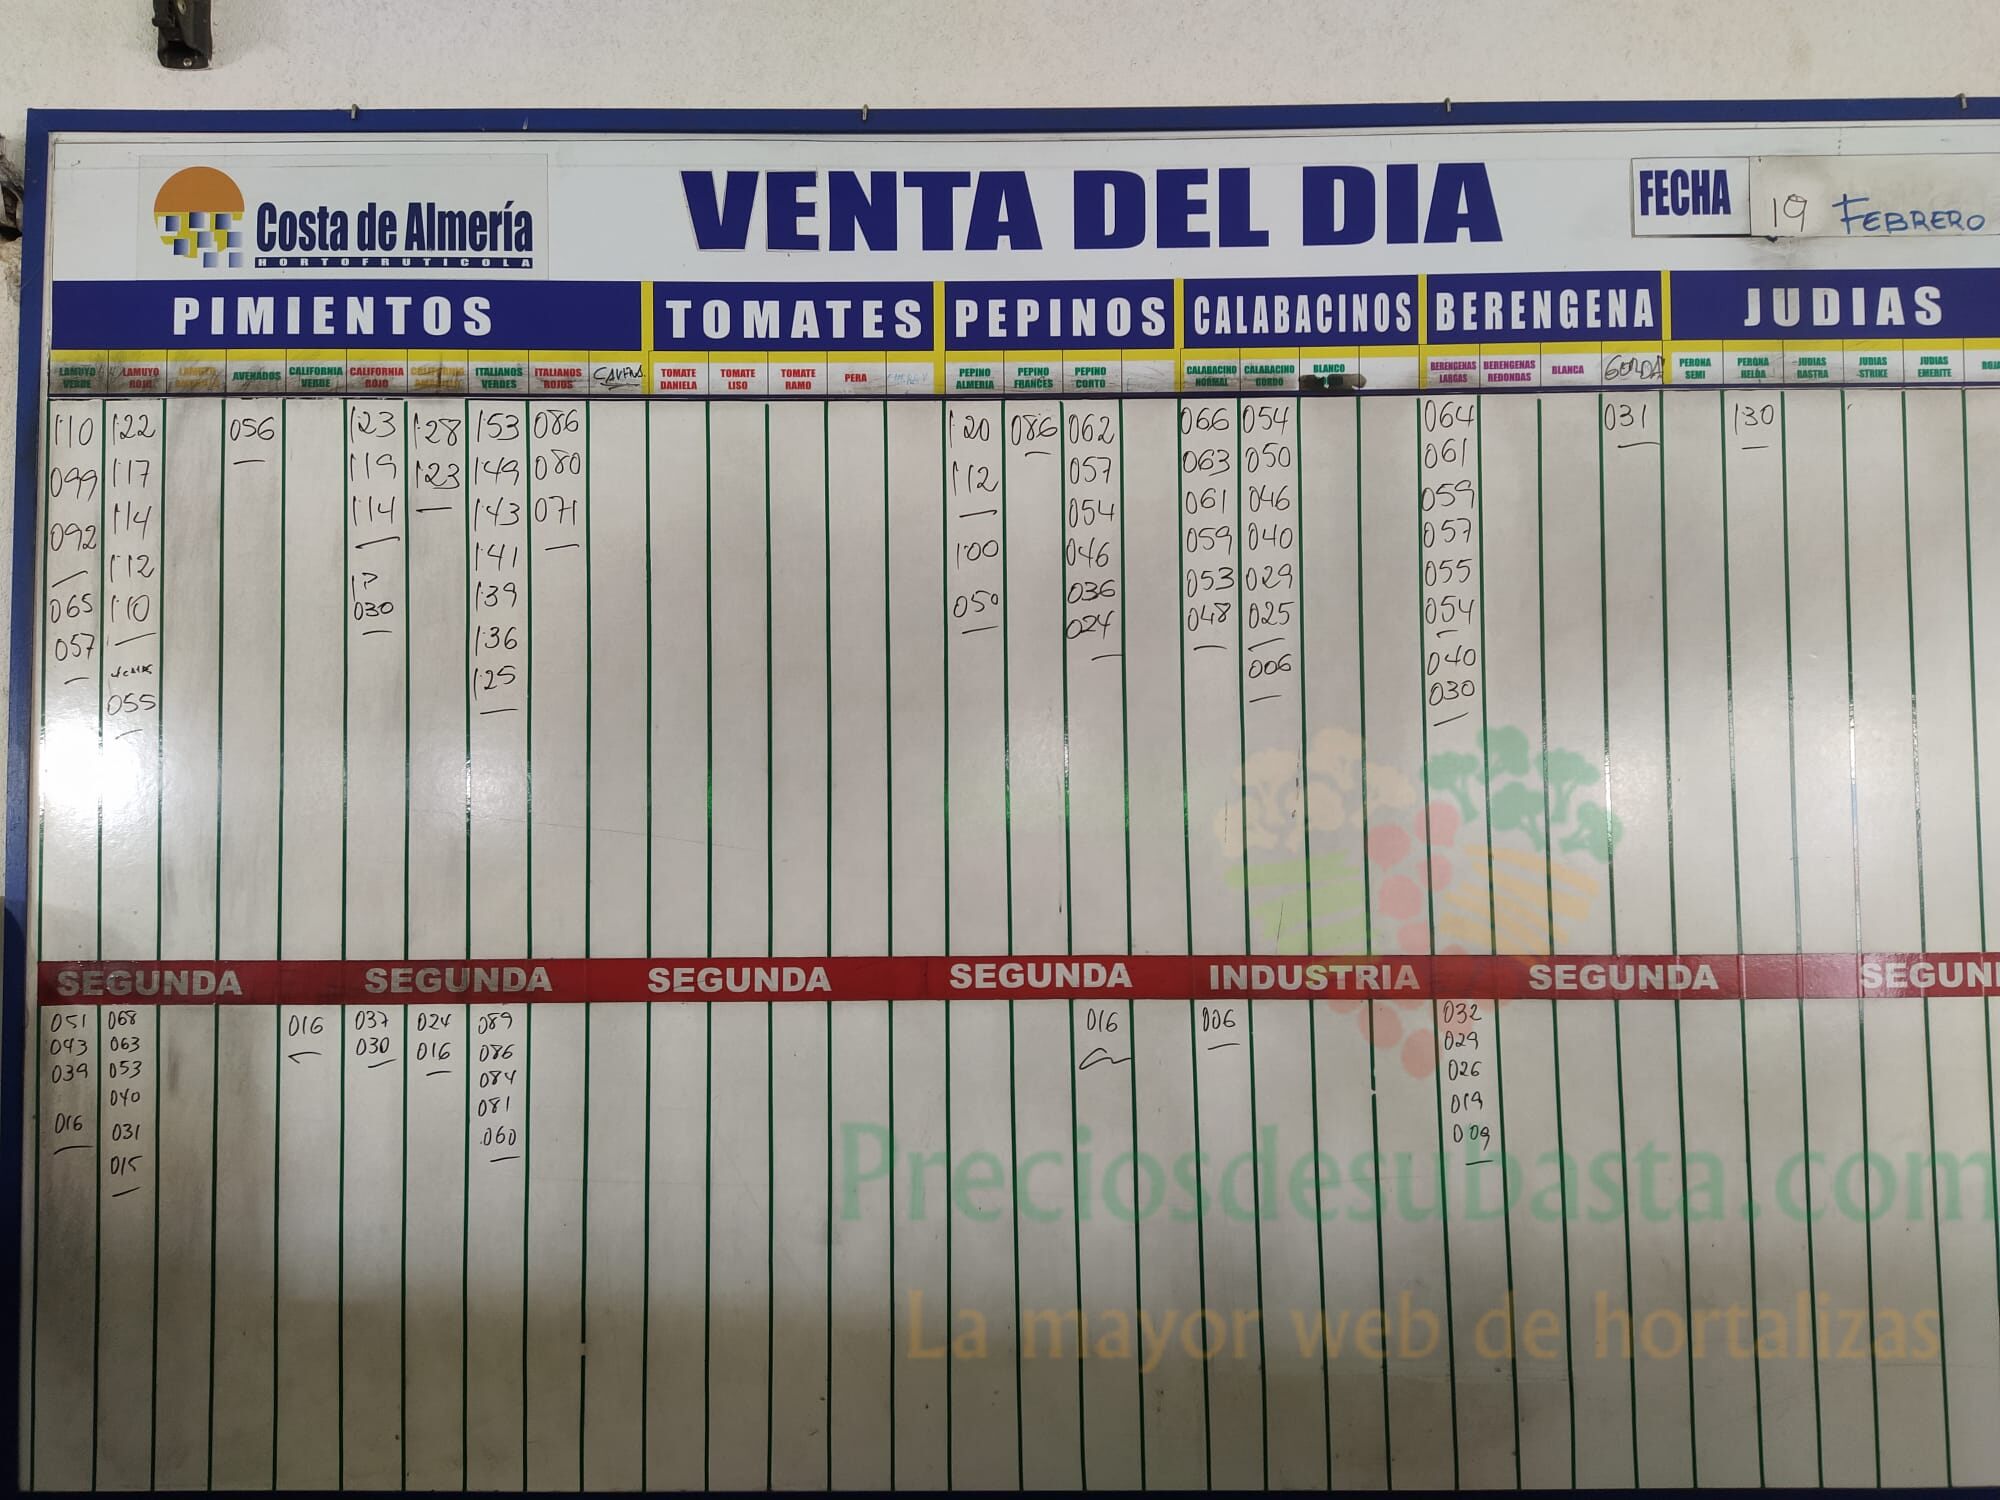 Costa de Almería
HORTOFRUTICOLA
VENTA DEL DIA
FECHA
19 FEBRERO
PIMIENTOS
TOMATES
PEPINOS
CALABACINOS
BERENGENA
JUDIAS
LAMUYO VERDE
LAMUYO ROJO
AVENADOS
CALIFORNIA VERDE
CALIFORNIA ROJO
CALIFORNIA AMARILLO
ITALIANOS VERDES
ITALIANOS ROJOS
TOMATE DANIELA
TOMATE LISO
TOMATE RAMO
PERA
PEPINO ALMERIA
PEPINO FRANCES
PEPINO CORTO
CALABACINO NORMAL
CALABACINO GORDO
BLANCO
BERENGENAS LARGAS
BERENGENAS REDONDAS
BLANCA
GORDA
PERONA SEMI
PERONA HELDA
JUDIAS RASTRA
JUDIAS STRIKE
JUDIAS EMERITE
ROJA
1'10
099
092
065
057
1'22
1'17
1'14
1'12
1'10
055
056
1'23
1'19
1'14
1?
030
1'28
1'23
1'53
1'49
1'43
1'41
1'39
1'36
1'25
086
080
071
1'20
1'12
1'00
050
086
062
057
054
046
036
024
066
063
061
059
053
048
054
050
046
040
029
025
006
064
061
059
057
055
054
040
030
031
1'30
SEGUNDA
SEGUNDA
SEGUNDA
SEGUNDA
INDUSTRIA
SEGUNDA
SEGUN
051
043
039
016
068
063
053
040
031
015
016
037
030
024
016
089
086
084
081
060
016
006
032
029
026
019
009
Preciosdesubasta.com
La mayor web de hortalizas